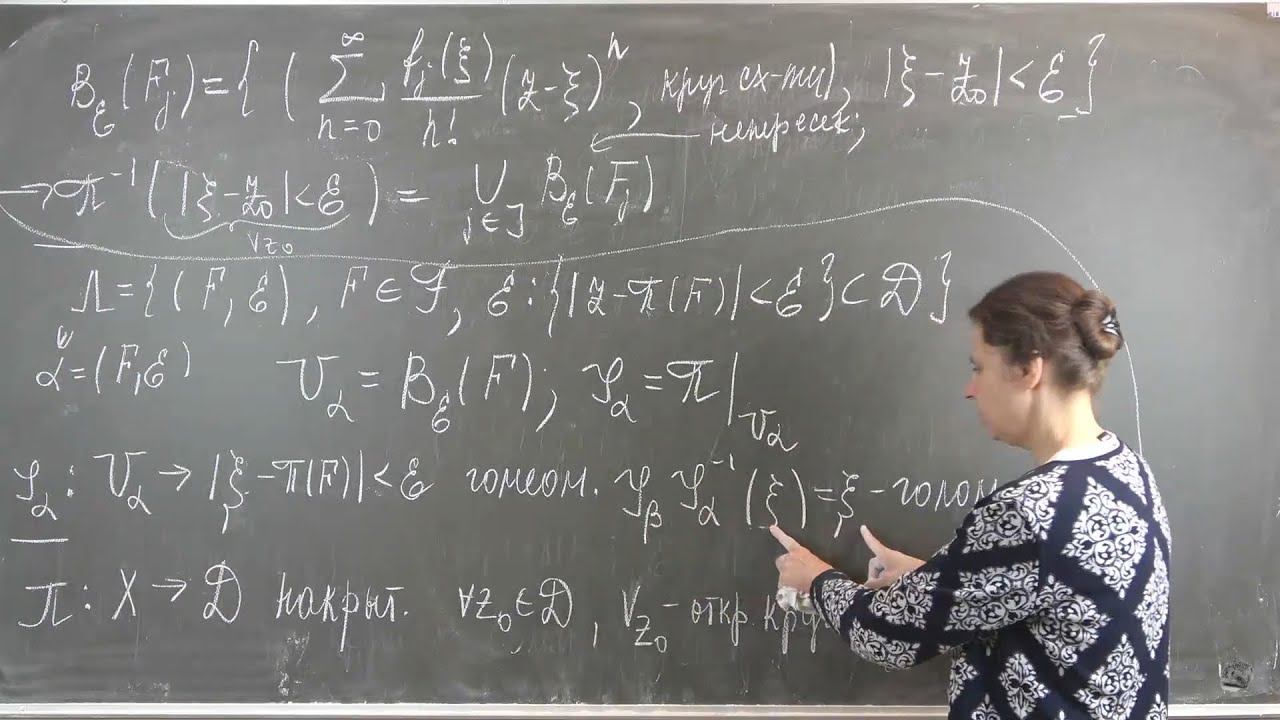 B_ε(F_j)={ ( ∑_{n=0}^{∞} f_j(ξ)/n! (z-ξ)^n, круг сх-ти), |ξ-z₀|<ε }
непересек;
→ π⁻¹( |ξ-z₀|<ε ) = ∪_{j∈J} B_ε(F_j)
V_{z₀}
Λ={(F,ε), F∈ℱ, ε:{|z-π(F)|<ε}⊂D}
α=(F,ε) U_α = B_ε(F); φ_α = π|_{U_α}
φ_α: U_α → |ξ-π(F)|<ε гомеом. φ_β φ_α⁻¹(ξ)=ξ - голом
π: X → D накрыт. ∀z₀∈D, V_{z₀} - откр. кру